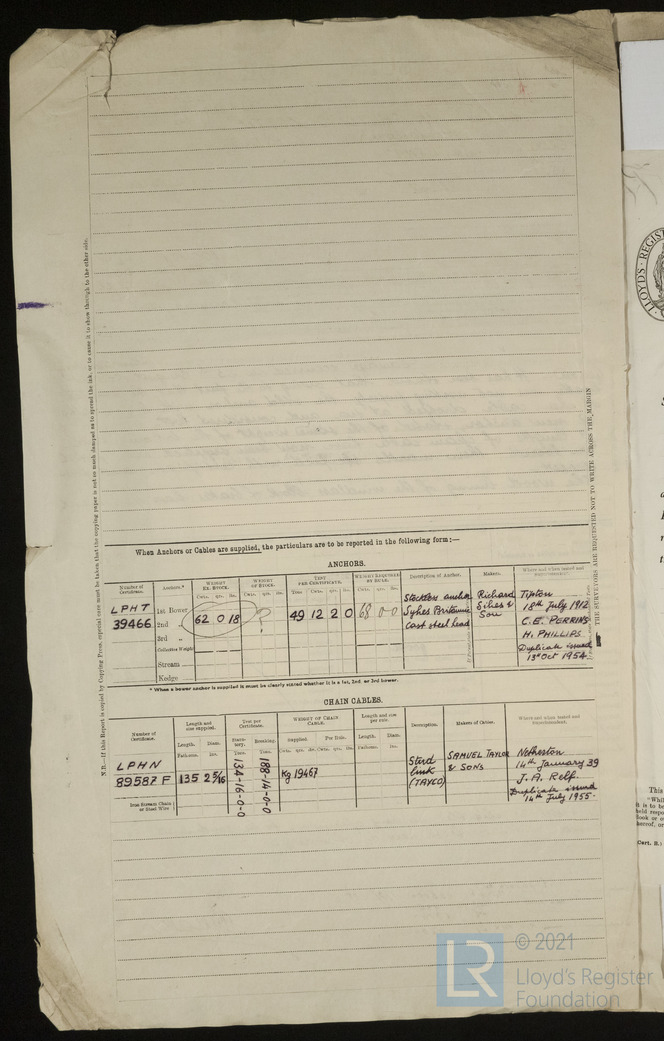 When Anchors or Cables are supplied, the particulars are to be reported in the following form:—
ANCHORS.
Number of Certificate. Anchors.* WEIGHT EX. STOCK. WEIGHT OF STOCK. TEST PER CERTIFICATE. WEIGHT REQUIRED BY RULE. Description of Anchor. Makers. Where and when tested and
Cwts. qrs. lbs. Cwts. qrs. lbs. Tons. Cwts. qrs. lbs. Cwts. qrs. lbs.
LPHT 1st Bower
39466 2nd „ 62 0 18 ? 49 12 2 0 68 0 0 Stockless anchor Richard Tipton
3rd „ Sykes Britannic Sikes & 18th July 1912
Collective Weight cast steel head Son C.E. PERRINS
Stream H. PHILLIPS
Kedge Duplicate issued
13th Oct 1954
* When a bower anchor is supplied it must be clearly stated whether it is a 1st, 2nd. or 3rd bower.
CHAIN CABLES.
Number of Certificate. Length and size supplied. Test per Certificate. WEIGHT OF CHAIN CABLE. Length and size per rule. Description. Makers of Cables. Where and when tested and
Length. Diam. Breaking. Supplied. Per Rule. Length. Diam.
Fathoms. Ins. Tons. Tons. Cwts. qrs. lbs. Cwts. qrs. lbs. Fathoms. Ins.
LPHN
89587 F 135 2 5/16 134-16-0-0 188-14-0-0 Kg 19467 Stud SAMUEL TAYLOR Netherton
link & SONS 14th January 39
(TAYCO) J. A. Relf.
Duplicate issued
14th July 1955.
Iron Stream Chain or Steel Wire
N.B.—If this Report is copied by Copying Press, special care must be taken that the copying paper is not so much damped as to spread the ink, or to cause it to show through to the other side.
THE SURVEYORS ARE REQUESTED NOT TO WRITE ACROSS THE MARGIN
LLOYD'S REGIS
This
Cert. B.
LR
© 2021
Lloyd's Register
Foundation